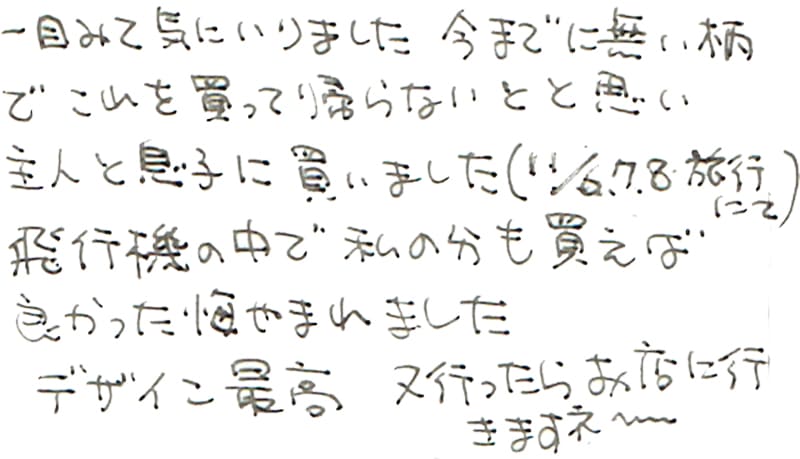 一目みて気にいりました 今までに無い柄
でこれを買って帰らないとと思い
主人と息子に買いました(11/6.7.8.旅行にて)
飛行機の中で私の分も買えば
良かった悔やまれました
デザイン最高 又行ったらお店に行
きますネ〜